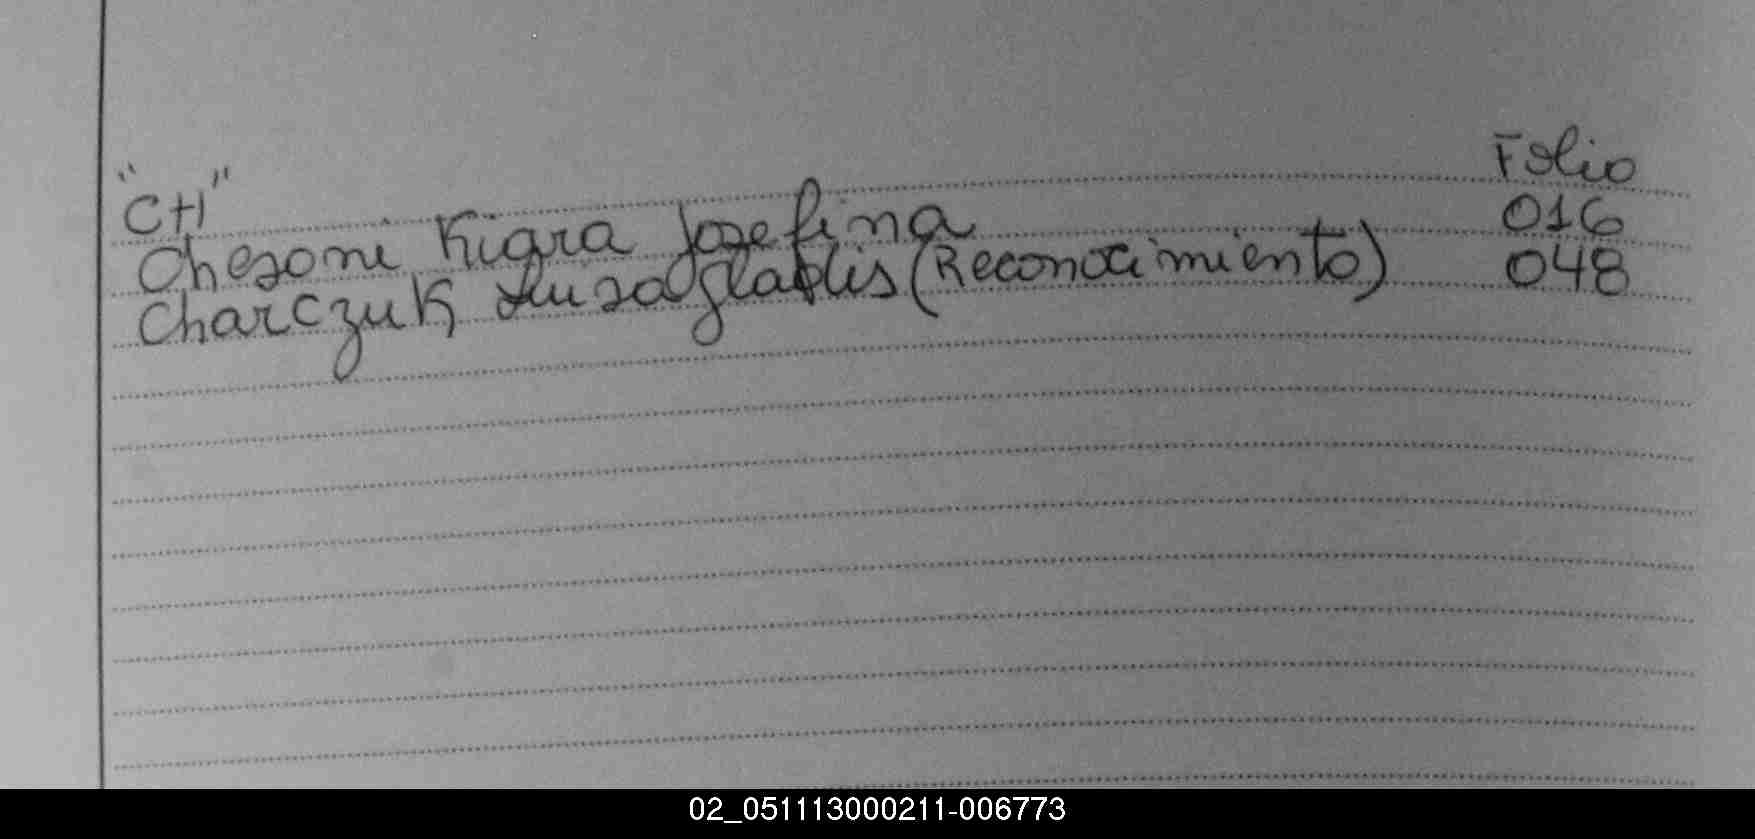 Folio
"CH"
Chesoni Kiara Josefina 016
Charczuk Luisa Gladis (Reconocimiento) 048
02_051113000211-006773